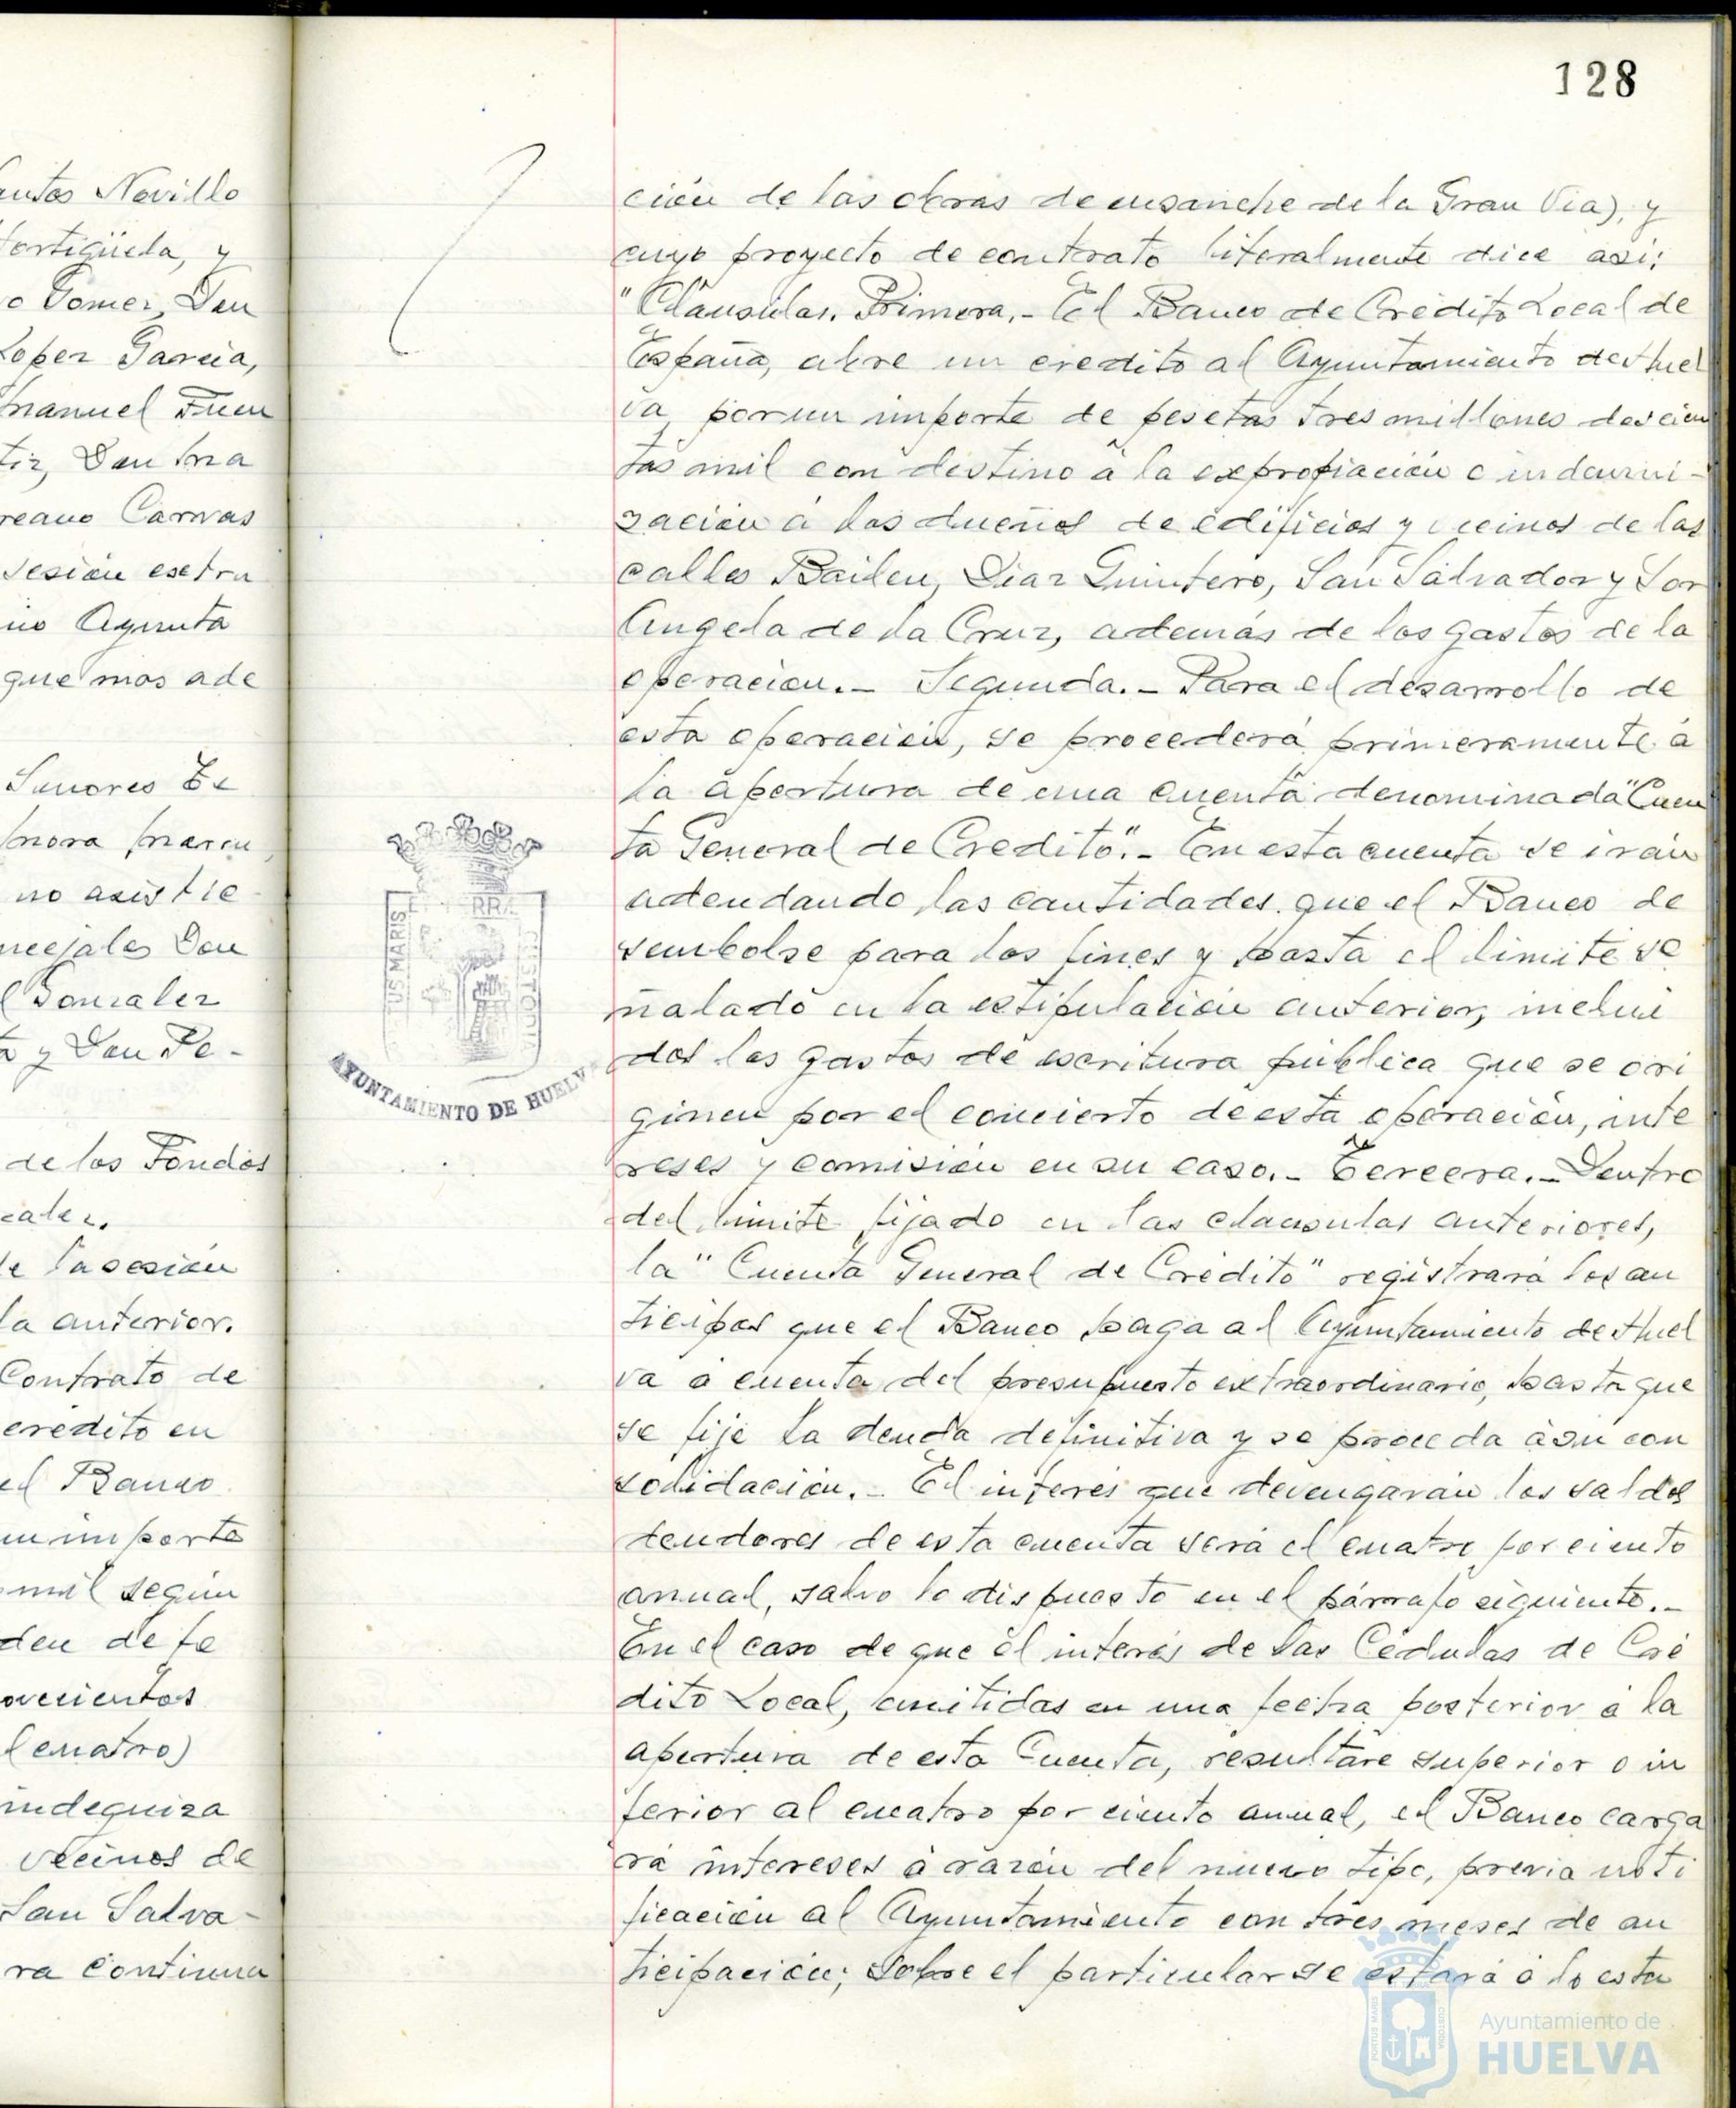 128
utos Novillo
ortigüela, y
o Gomez, Don
Lopez Garcia,
Manuel Fuen
tiz, Don Ma
reano Carvas
sesión extra
no Ayunta
que mas ade
Senores Te
mora
no asistie
ncejales Don
Gonzalez
a y Don Pe-
de los Fondos
cales.
de la sesión
la anterior.
Contrato de
credito en
el Banco
un importe
mil según
den de fe
ovecientos
cuatro)
indegniza
vecinos de
San Salva-
ra continua
ción de las obras de ensanche de la Gran Via), y
cuyo proyecto de contrato literalmente dice asi:
"Cláusulas. Primera.- El Banco de Crédito Local de
España, abre un credito al Ayuntamiento de Huel
va, por un importe de pesetas tres millones doscien
tas mil con destino a la expropiación o indemni-
zación a los dueños de edificios y vecinos de las
calles Bailen, Diaz Quintero, San Salvador y Sor
Angela de la Cruz, además de los gastos de la
operacion.- Segunda.- Para el desarrollo de
esta operación, se procederá primeramente á
la apertura de una cuenta denominada "Cuen
ta General de Credito".- En esta cuenta se irán
adeudando las cantidades que el Banco de
sembolse para los fines y hasta el limite se
ñalado en la estipulación anterior, inclui
dos los gastos de escritura pública que se ori
ginen por el concierto de esta operación, inte
reses y comisión en su caso.- Tercera.- Dentro
del limite fijado en las clausulas anteriores,
la "Cuenta General de Crédito" registrará los an
ticipos que el Banco haga al Ayuntamiento de Huel
va a cuenta del presupuesto extraordinario, hasta que
se fije la deuda definitiva y se proceda á su con
solidación.- El interés que devengarán los saldos
deudores de esta cuenta será el cuatro por ciento
anual, salvo lo dispuesto en el párrafo siguiente.-
En el caso de que el interés de las Cédulas de Cré
dito Local, emitidas en una fecha posterior á la
apertura de esta Cuenta, resultare superior o in
ferior al cuatro por ciento anual, el Banco carga
rá intereses á razón del nuevo tipo, previa noti
ficación al Ayuntamiento con tres meses de an
ticipación; sobre el particular se estará a lo esta
US MARIS
AYUNTAMIENTO DE HUELVA
PORTUS MARIS
CUSTODIA
Ayuntamiento de
HUELVA